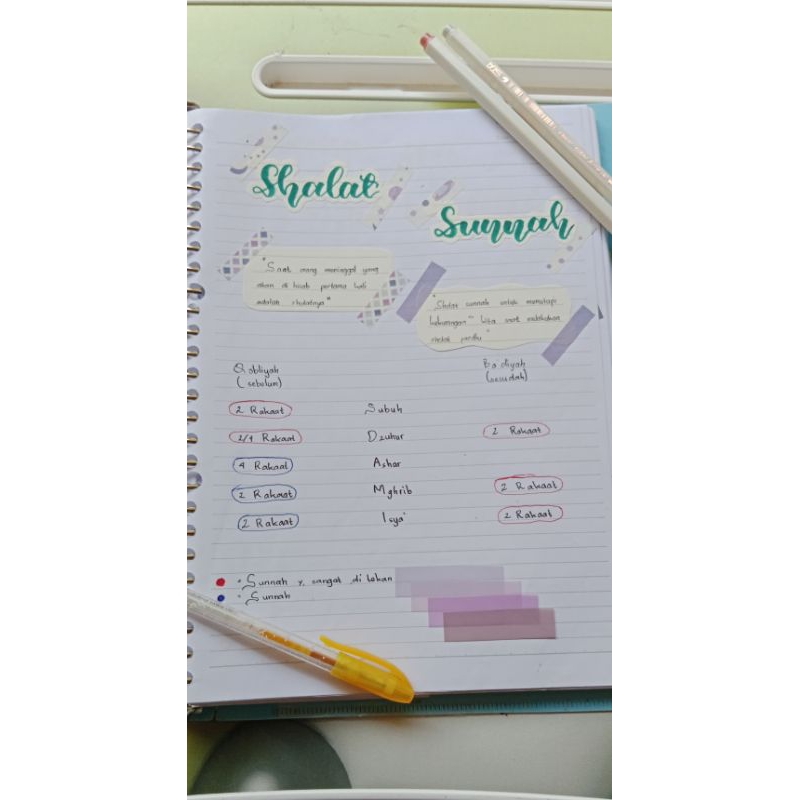 Shalat
Sunnah
"Saat orang meninggal yang
akan di hisab pertama kali
adalah shalatnya"
"Shalat sunnah untuk menutupi
kekurangan" kita saat melakukan
shalat fardhu"
Qobliyah
(sebelum)
Ba'diyah
(sesudah)
2 Rakaat Subuh
2/4 Rakaat Dzuhur 2 Rakaat
4 Rakaat Ashar
2 Rakaat Mghrib 2 Rakaat
2 Rakaat Isya' 2 Rakaat
• Sunnah y. sangat di tekan
• Sunnah